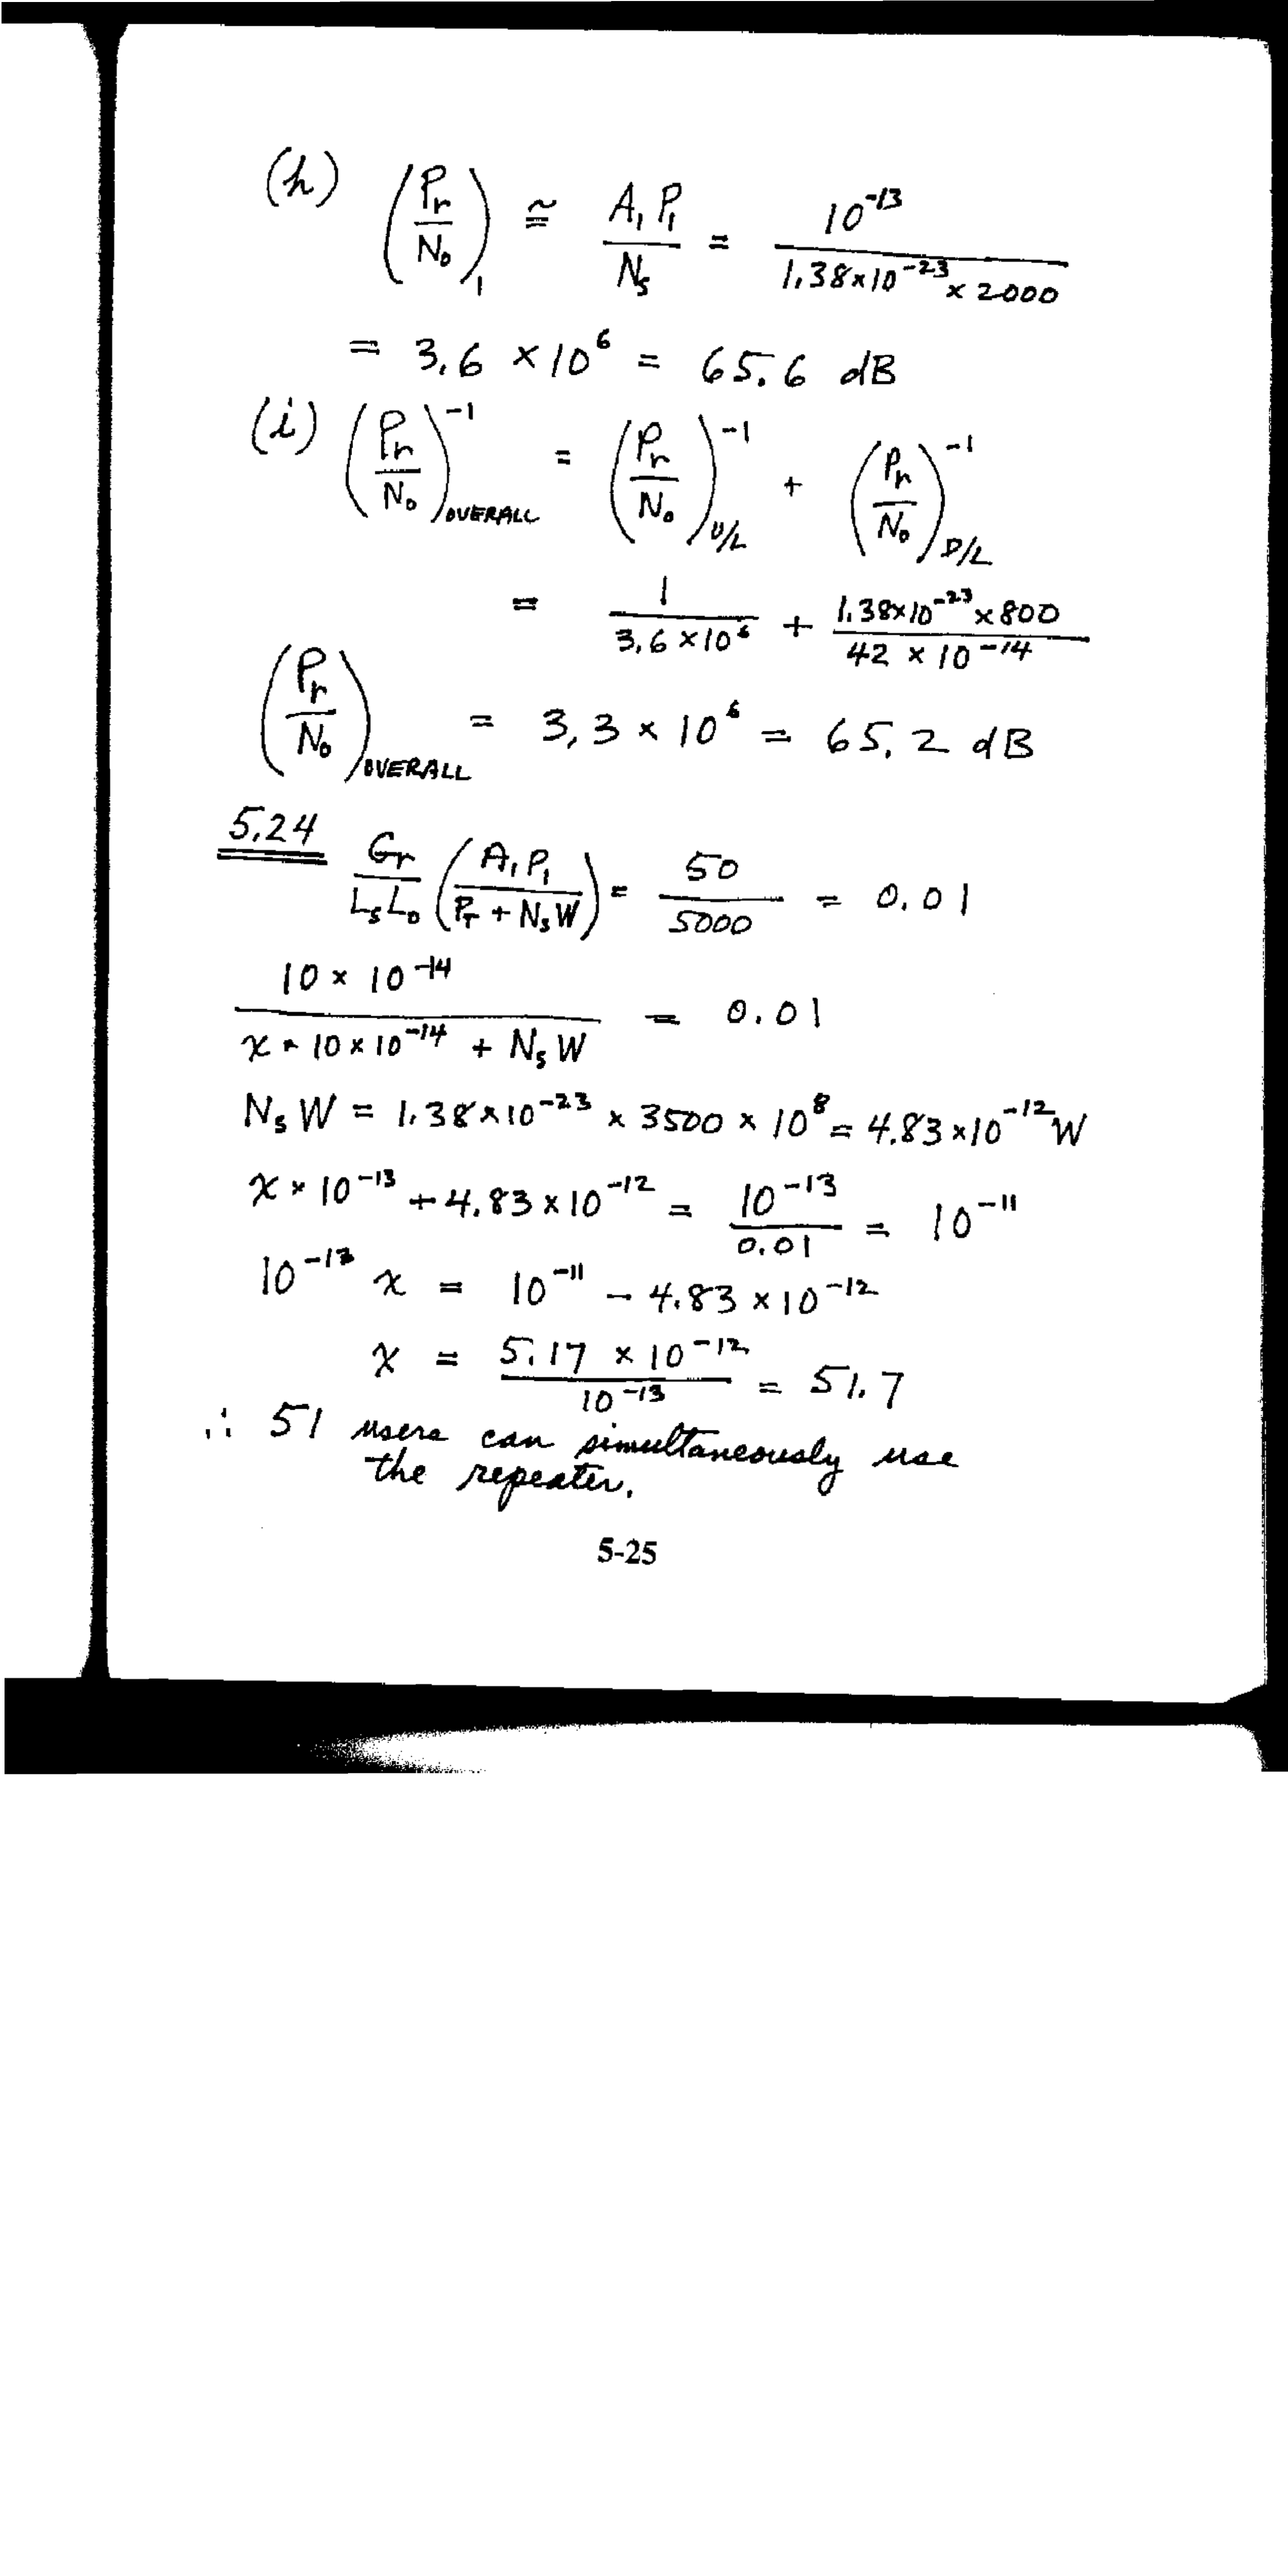 (h) (Pr/N₀)₁ ≅ A₁P₁/Nₛ = 10⁻¹³/(1.38×10⁻²³ × 2000)
= 3.6 × 10⁶ = 65.6 dB
(i) (Pr/N₀)⁻¹ OVERALL = (Pr/N₀)⁻¹ U/L + (Pr/N₀)⁻¹ D/L
= 1/(3.6 × 10⁶) + (1.38×10⁻²³ × 800)/(42 × 10⁻¹⁴)
(Pr/N₀) OVERALL = 3.3 × 10⁶ = 65.2 dB
5.24 Gr/(LₛL₀) (A₁P₁/(P_T + NₛW)) = 50/5000 = 0.01
(10 × 10⁻¹⁴)/(x × 10 × 10⁻¹⁴ + NₛW) = 0.01
NₛW = 1.38×10⁻²³ × 3500 × 10⁸ = 4.83 × 10⁻¹² W
x × 10⁻¹³ + 4.83 × 10⁻¹² = 10⁻¹³/0.01 = 10⁻¹¹
10⁻¹³ x = 10⁻¹¹ − 4.83 × 10⁻¹²
x = (5.17 × 10⁻¹²)/10⁻¹³ = 51.7
∴ 51 users can simultaneously use
the repeater.
5-25